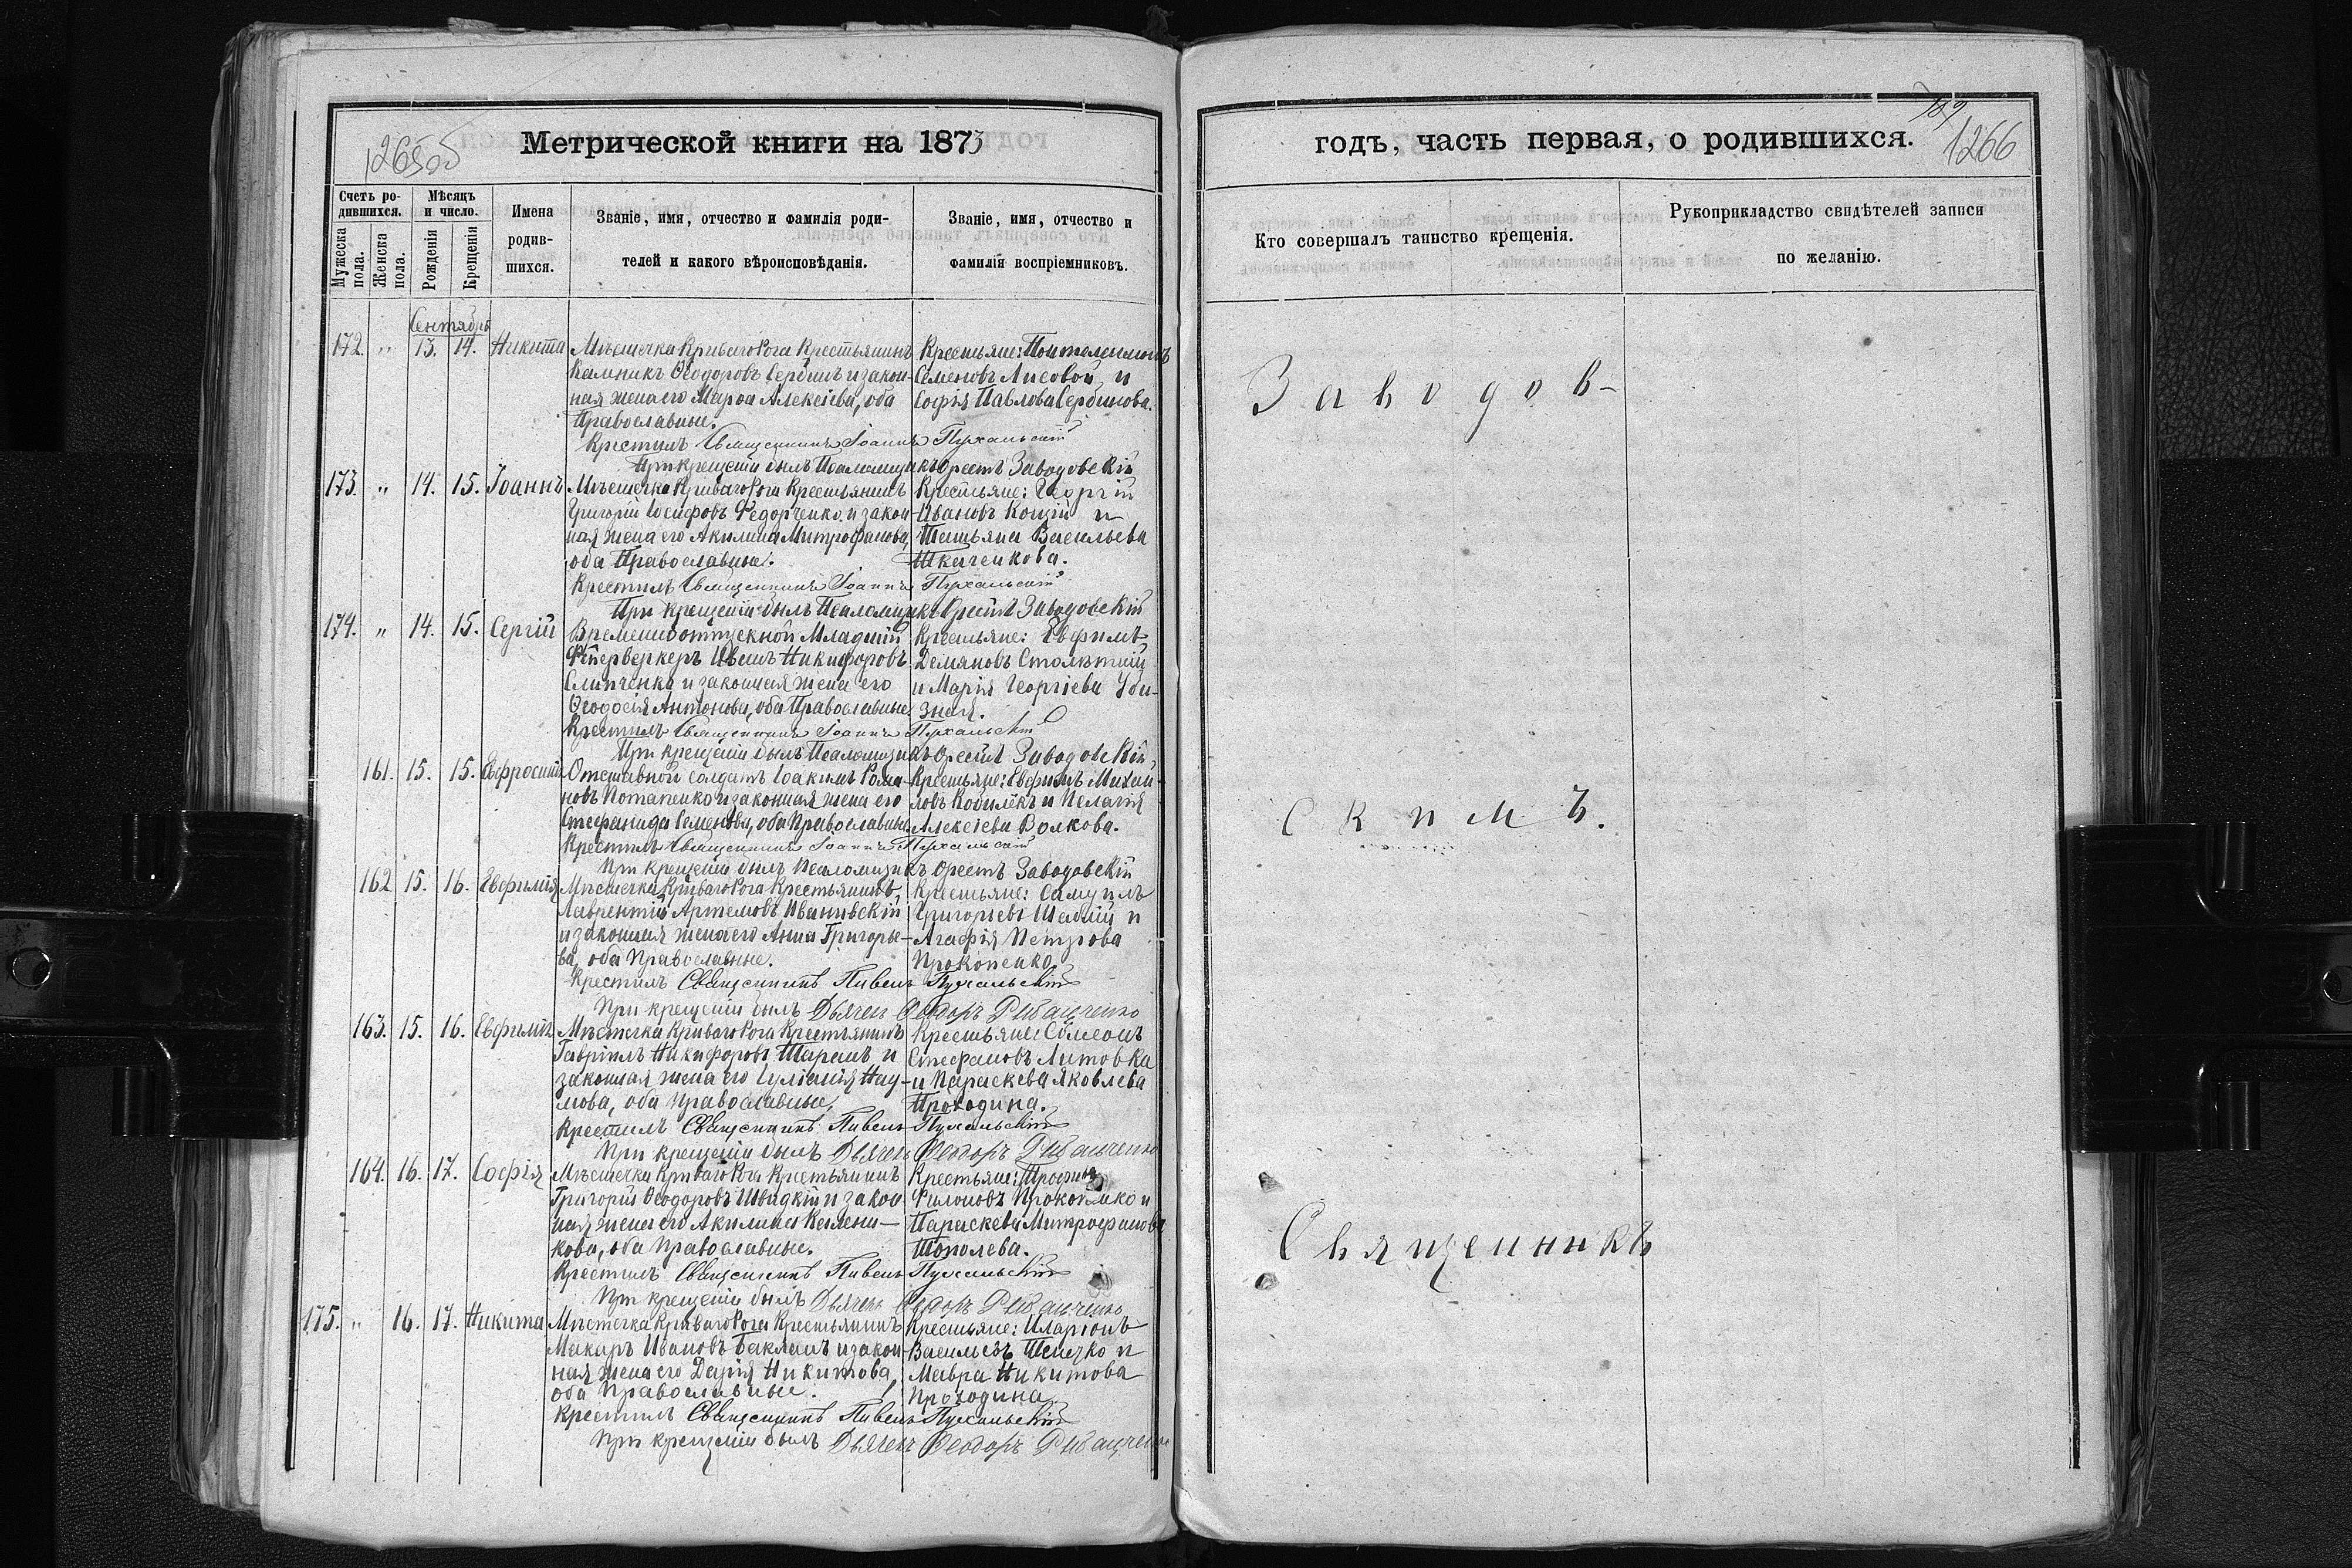 1265об
Метрической книги на 1873
Счетъ ро-
дившихся.
Мѣсяцъ
и число.
Мужеска пола.
Женска пола.
Рожденія
Крещенія
Имена
родив-
шихся.
Званіе, имя, отчество и фамилія роди-
телей и какого вѣроисповѣданія.
Званіе, имя, отчество и
фамилія воспріемниковъ.
Сентябрь
172. " 13. 14. Никита Мѣстечка Криваго Рога Крестьянинъ Крестьяне:
Ѳеодоровъ и закон- Семеновъ Лисовой, и
ная жена его Марѳа Алексіева, оба Софія Павлова Сербинова.
Православные.
Крестилъ Священникъ Іоаннъ Пухальскій
При крещеніи былъ Псаломщикъ Орестъ Заводовскій
173. " 14. 15. Іоаннъ Мѣстечка Криваго Рога Крестьянинъ Крестьяне: Георгій
Григорій Іосифовъ Федорченко и закон- Ивановъ Коцій и
ная жена его Акилина Митрофанова, Татьяна Васильева
оба Православные. Ткаченкова.
Крестилъ Священникъ Іоаннъ Пухальскій
При крещеніи былъ Псаломщикъ Орестъ Заводовскій
174. " 14. 15. Сергій Временноотпускной Младшій Крестьяне: Евфимъ
Фейерверкеръ Иванъ Никифоровъ Демяновъ Столѣтній
Слипченко и законная жена его и Марія Георгіева Уби-
Ѳеодосія Антонова, оба Православные. зная.
Крестилъ Священникъ Іоаннъ Пухальскій
При крещеніи былъ Псаломщикъ Орестъ Заводовскій
161. 15. 15. Евфросинія Отставной солдатъ Іоакимъ Рома- Крестьяне: Евфимъ Михаи-
новъ Потапенко и законная жена его ловъ Кобилекъ и Пелагія
Стефанида Семенова, оба Православные. Алексіева Волкова.
Крестилъ Священникъ Іоаннъ Пухальскій
При крещеніи былъ Псаломщикъ Орестъ Заводовскій
162. 15. 16. Евфимія Мѣстечка Криваго Рога Крестьянинъ Крестьяне: Самуилъ
Лаврентій Артемовъ Ивановскій Григорьевъ и
и законная жена его Анна Григорье- Агафія Петрова
ва, оба Православные. Прокопенко.
Крестилъ Священникъ Павелъ Пухальскій
При крещеніи былъ Дьячекъ Ѳеодоръ
163. 15. 16. Евфимія Мѣстечка Криваго Рога Крестьянинъ Крестьяне: Симеонъ
Гавріилъ Никифоровъ Таранъ и Стефановъ Литовка
законная жена его Іуліанія Нау- и Параскева Яковлева
мова, оба Православные. Проходина.
Крестилъ Священникъ Павелъ Пухальскій
При крещеніи былъ Дьячекъ Ѳеодоръ
164. 16. 17. Софія Мѣстечка Криваго Рога Крестьянинъ Крестьяне: Трофимъ
Григорій Ѳеодоровъ Швидкій и закон- Филоновъ Прокопенко и
ная жена его Акилина Параскева Митрофанова
кова, оба Православные. Тополева.
Крестилъ Священникъ Павелъ Пухальскій
При крещеніи былъ Дьячекъ Ѳеодоръ
175. " 16. 17. Никита Мѣстечка Криваго Рога Крестьянинъ Крестьяне: Иларіонъ
Макаръ Ивановъ Бакланъ и закон- Васильевъ и
ная жена его Дарія Никитова, Мавра Никитова
оба Православные. Проходина
Крестилъ Священникъ Павелъ Пухальскій
При крещеніи былъ Дьячекъ Ѳеодоръ
годъ, часть первая, о родившихся.
1266
Кто совершалъ таинство крещенія.
Рукоприкладство свидѣтелей записи
по желанію.
Заводов-
скимъ.
Священникъ